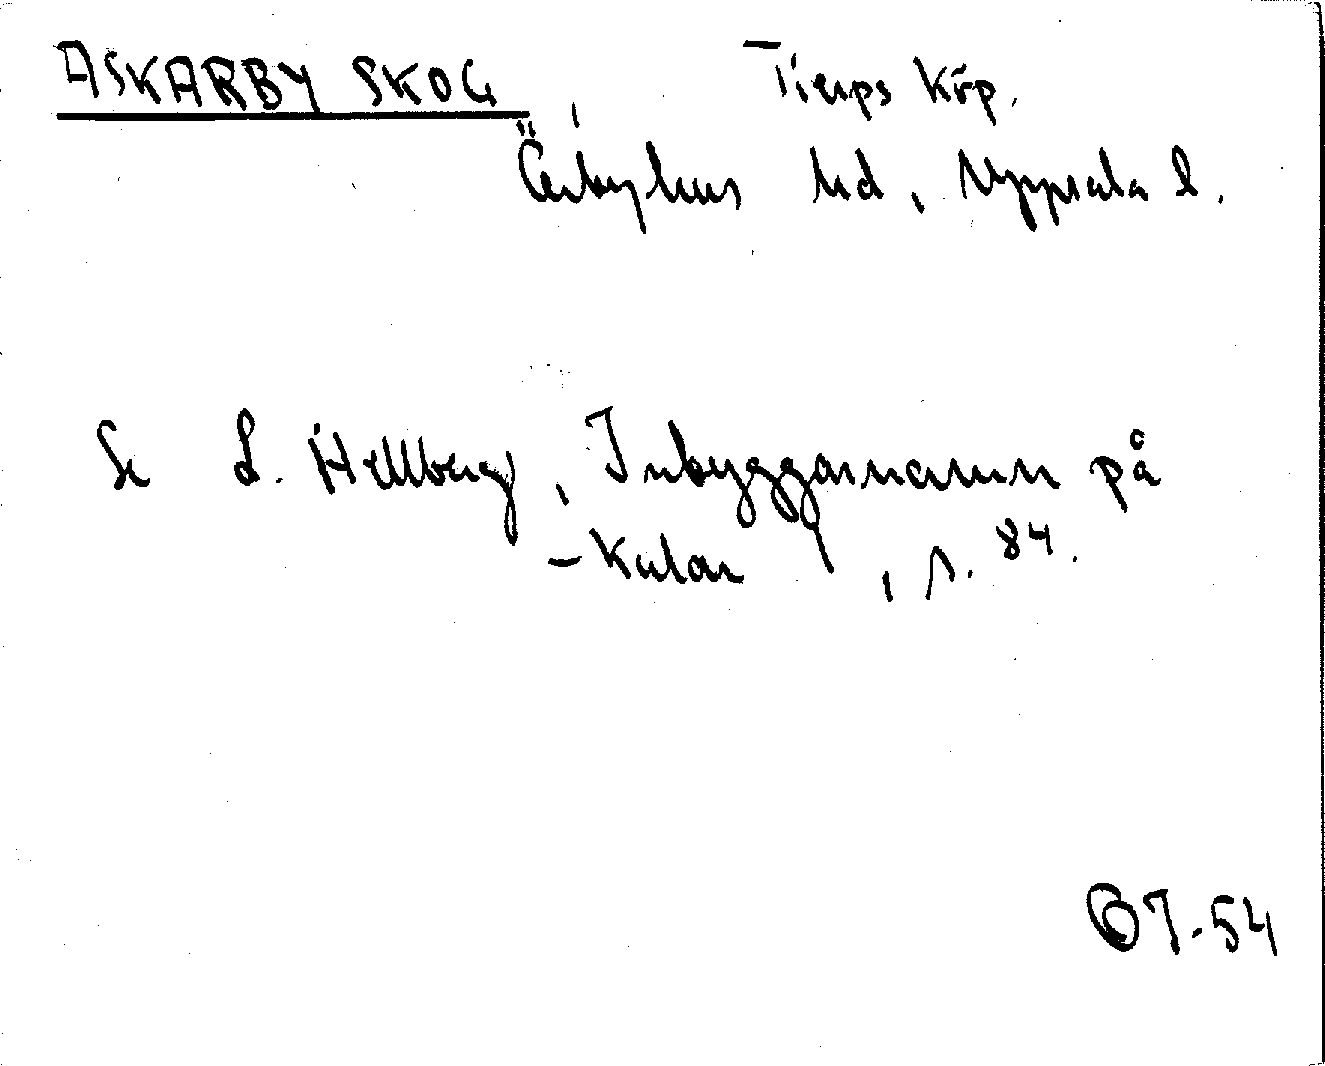 ASKARBY SKOG, Tierps köp.
Örbyhus hd, Uppsala l.
Se L. Hellberg, Inbyggarnamn på
-karlar, s. 84.
OT-54